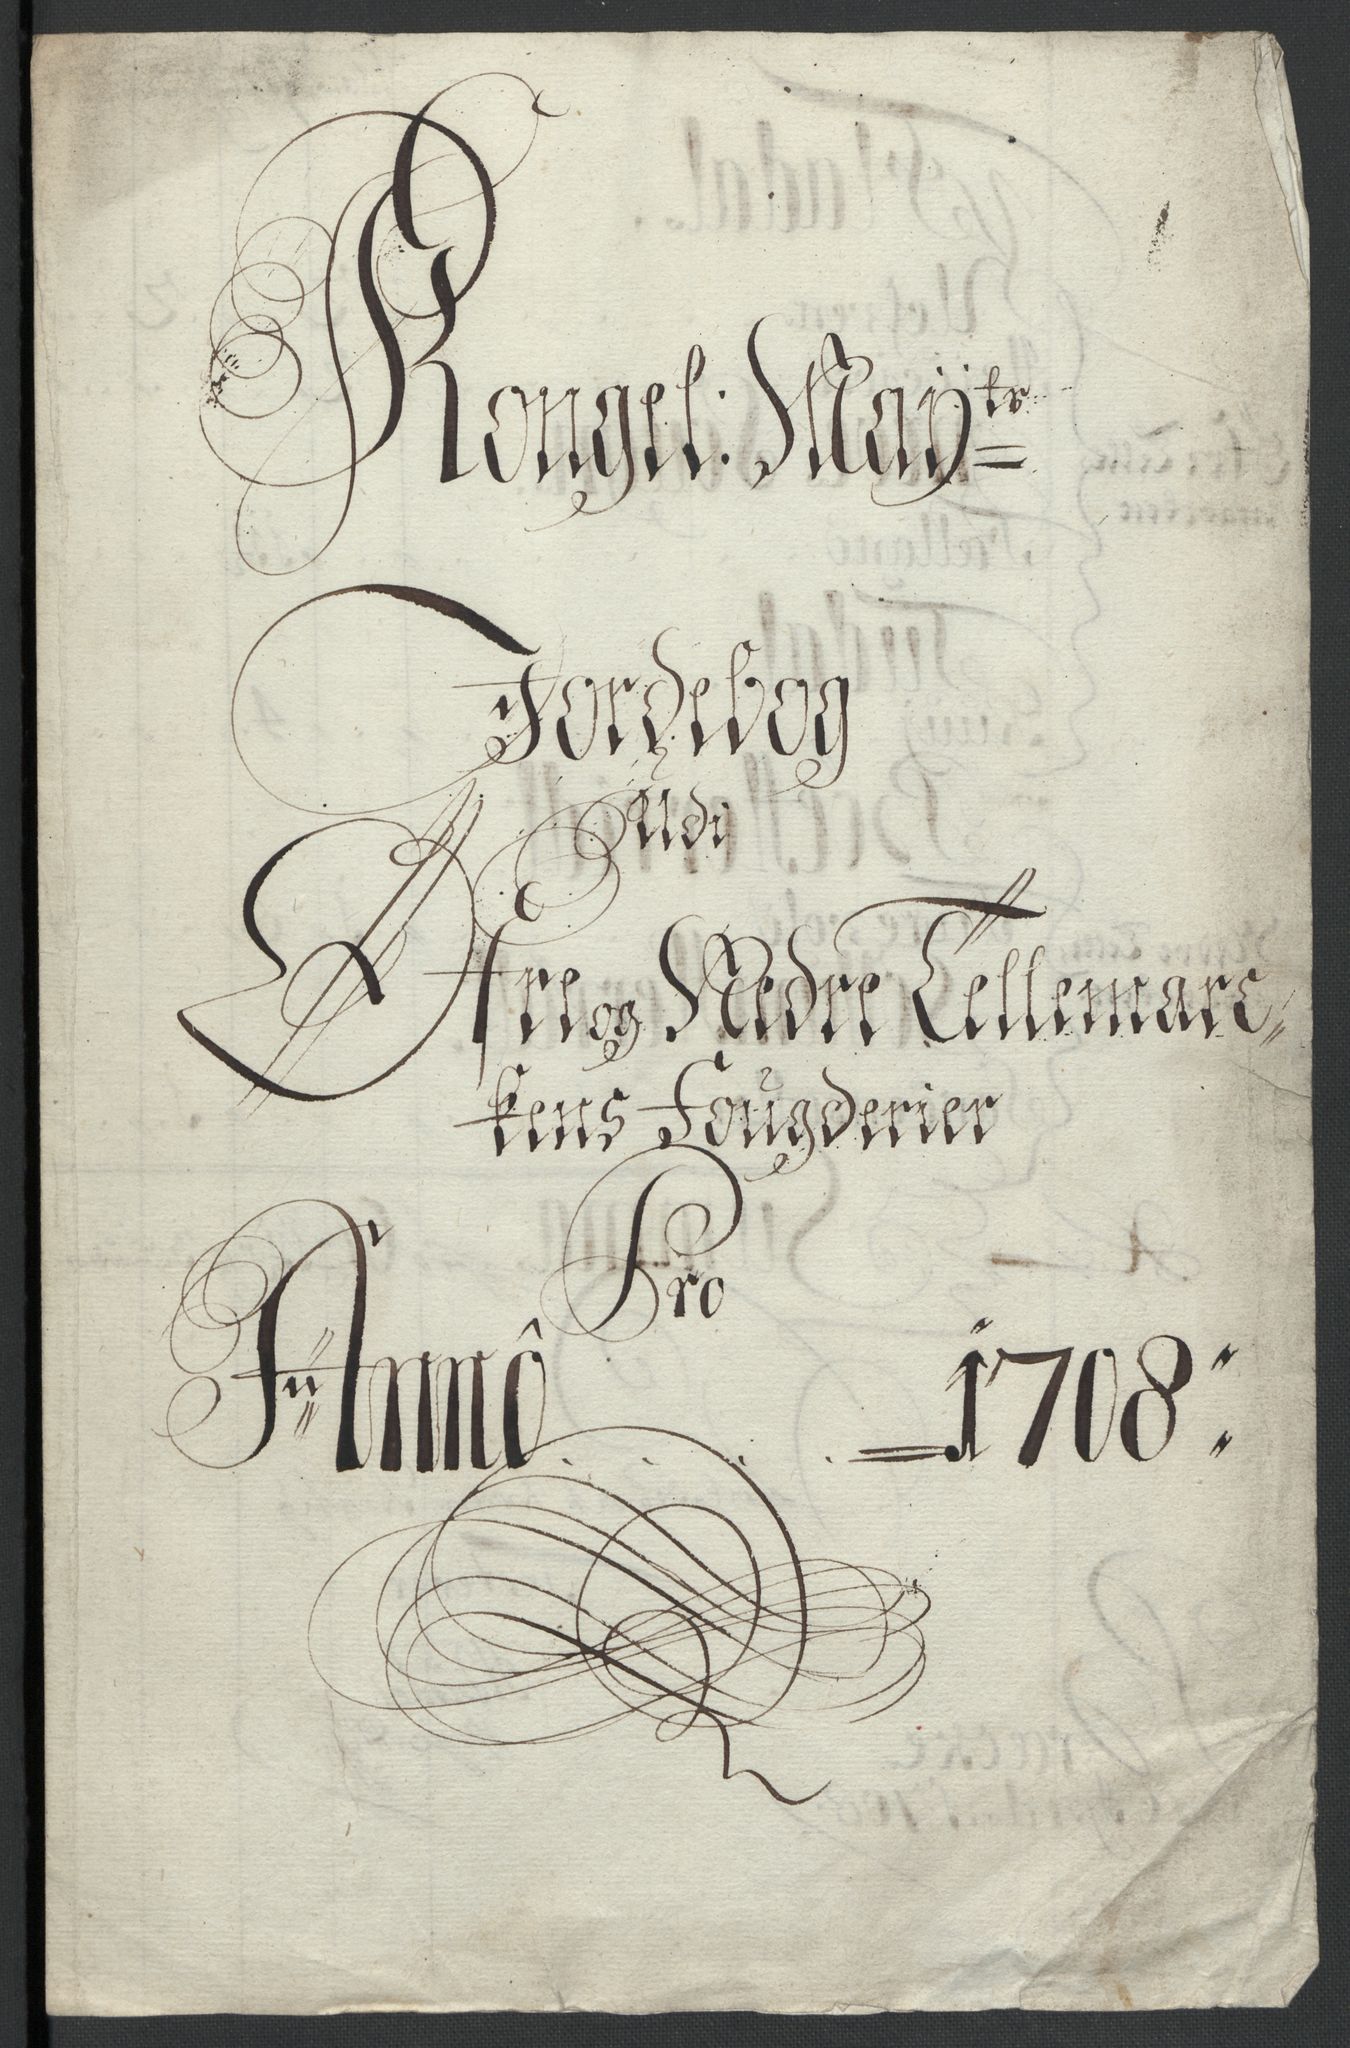 Kongel: Mayᵗˢ
Jordebog
Udi
Øfre og Nedre Tellemarc-
kens Fougderier
Pro
Anno 1708: